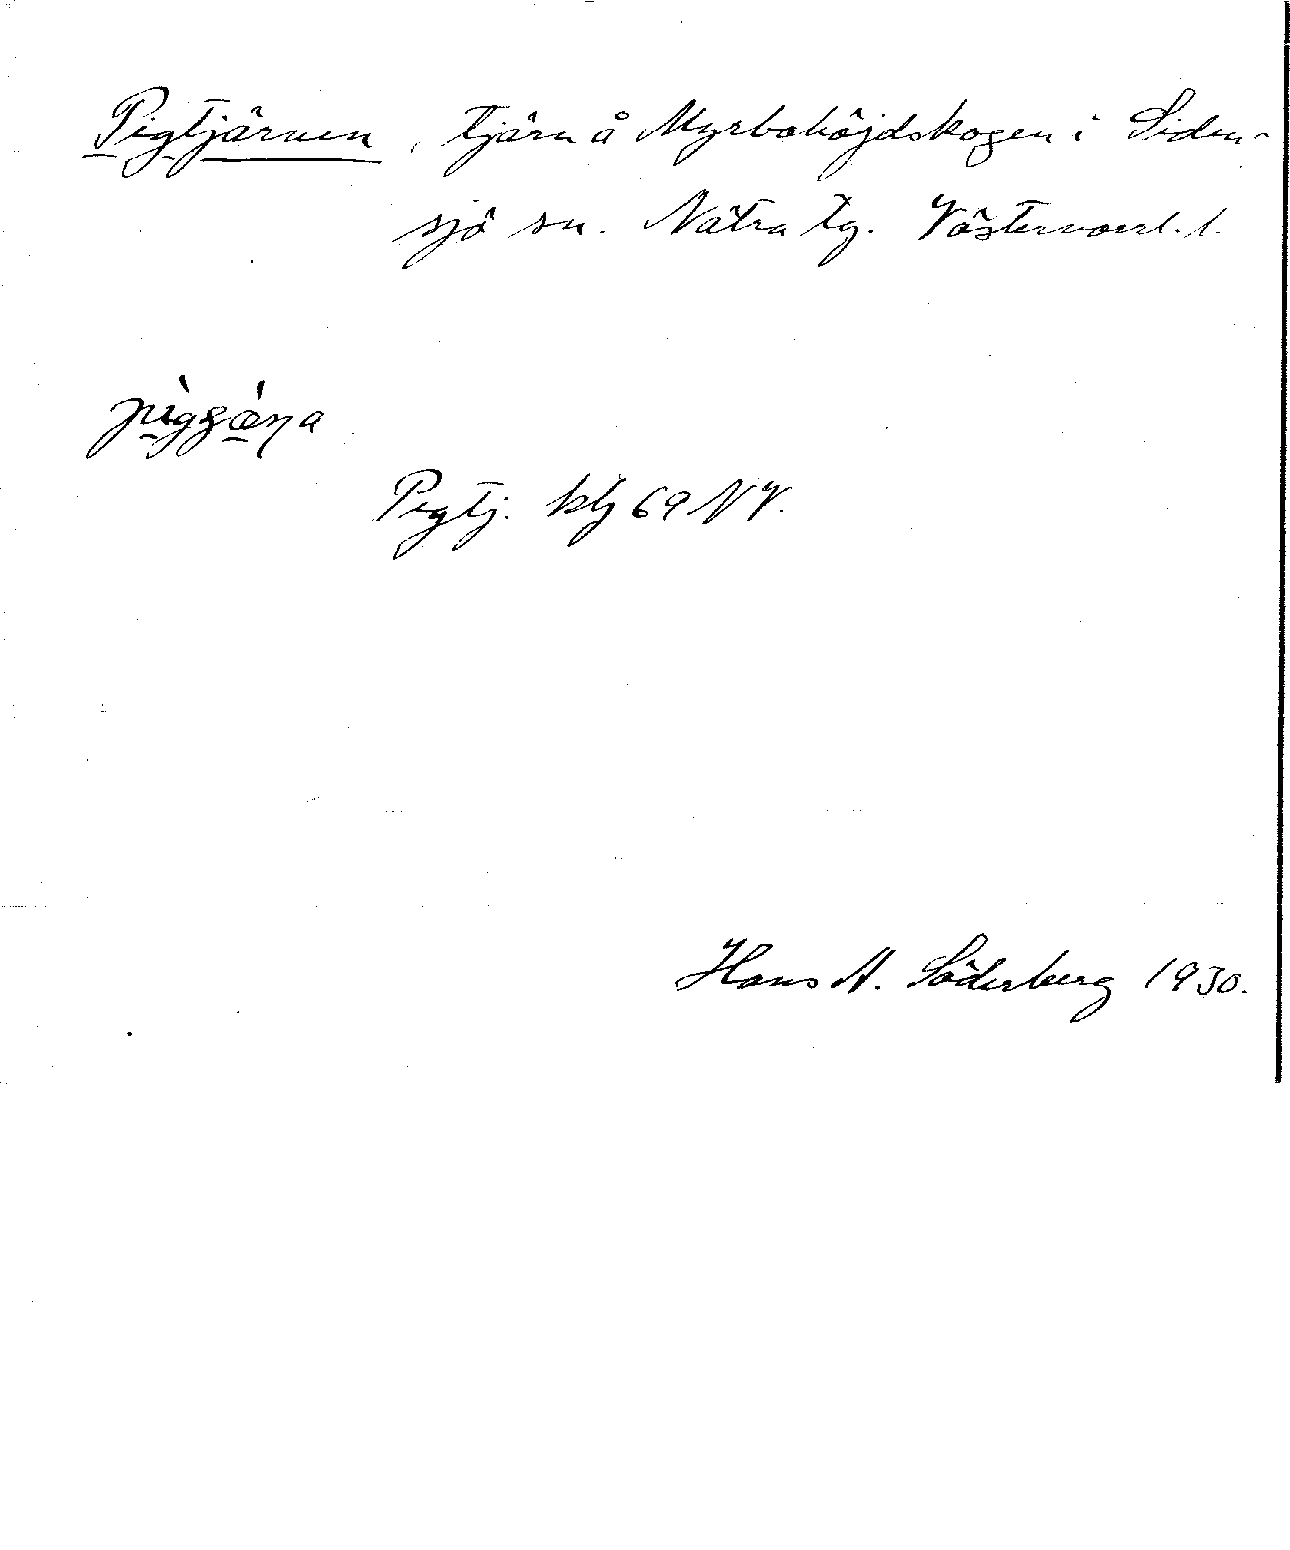 Pigtjärnen, tjärn å Myrbohöjdskogen i Siden-
sjö sn. Nätra tg. Västernorrl. l.
Pigtj. kbj 69 NV.
Hans A. Söderberg 1930.